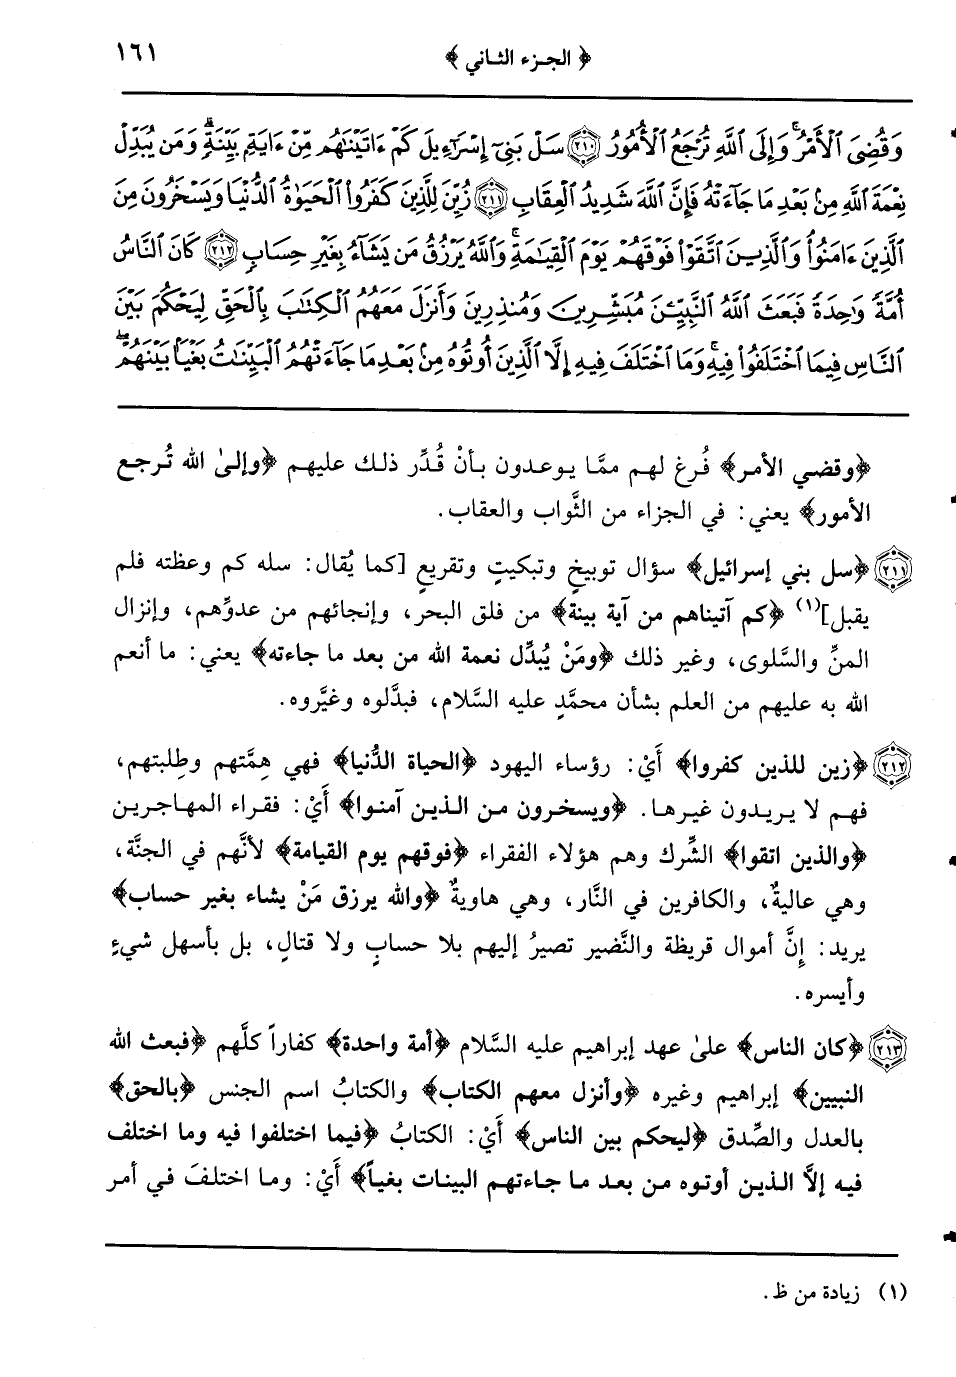 ﴿ الجزء الثاني ﴾ ١٦١
وَقُضِىَ ٱلْأَمْرُ ۚ وَإِلَى ٱللَّهِ تُرْجَعُ ٱلْأُمُورُ ٢١٠ سَلْ بَنِىٓ إِسْرَٰٓءِيلَ كَمْ ءَاتَيْنَـٰهُم مِّنْ ءَايَةٍۭ بَيِّنَةٍ ۗ وَمَن يُبَدِّلْ
نِعْمَةَ ٱللَّهِ مِنۢ بَعْدِ مَا جَآءَتْهُ فَإِنَّ ٱللَّهَ شَدِيدُ ٱلْعِقَابِ ٢١١ زُيِّنَ لِلَّذِينَ كَفَرُوا۟ ٱلْحَيَوٰةُ ٱلدُّنْيَا وَيَسْخَرُونَ مِنَ
ٱلَّذِينَ ءَامَنُوا۟ ۘ وَٱلَّذِينَ ٱتَّقَوْا۟ فَوْقَهُمْ يَوْمَ ٱلْقِيَـٰمَةِ ۗ وَٱللَّهُ يَرْزُقُ مَن يَشَآءُ بِغَيْرِ حِسَابٍ ٢١٢ كَانَ ٱلنَّاسُ
أُمَّةً وَٰحِدَةً فَبَعَثَ ٱللَّهُ ٱلنَّبِيِّـۧنَ مُبَشِّرِينَ وَمُنذِرِينَ وَأَنزَلَ مَعَهُمُ ٱلْكِتَـٰبَ بِٱلْحَقِّ لِيَحْكُمَ بَيْنَ
ٱلنَّاسِ فِيمَا ٱخْتَلَفُوا۟ فِيهِ ۚ وَمَا ٱخْتَلَفَ فِيهِ إِلَّا ٱلَّذِينَ أُوتُوهُ مِنۢ بَعْدِ مَا جَآءَتْهُمُ ٱلْبَيِّنَـٰتُ بَغْيًۢا بَيْنَهُمْ ۖ
﴿وقضي الأمر﴾ فُرغ لهم ممَّا يوعدون بأنْ قُدِّر ذلك عليهم ﴿وإلىٰ الله تُرجع
الأمور﴾ يعني: في الجزاء من الثَّواب والعقاب.
٢١١ ﴿سل بني إسرائيل﴾ سؤال توبيخٍ وتبكيتٍ وتقريعٍ [كما يُقال: سله كم وعظته فلم
يقبل](١) ﴿كم آتيناهم من آية بينة﴾ من فلق البحر، وإنجائهم من عدوِّهم، وإنزال
المنِّ والسَّلوى، وغير ذلك ﴿ومَنْ يُبدِّل نعمة الله من بعد ما جاءته﴾ يعني: ما أنعم
الله به عليهم من العلم بشأن محمَّدٍ عليه السَّلام، فبدَّلوه وغيَّروه.
٢١٢ ﴿زين للذين كفروا﴾ أَيْ: رؤساء اليهود ﴿الحياة الدُّنيا﴾ فهي هِمَّتهم وطِلبتهم،
فهم لا يريدون غيرها. ﴿ويسخرون من الذين آمنوا﴾ أَيْ: فقراء المهاجرين
﴿والذين اتقوا﴾ الشِّرك وهم هؤلاء الفقراء ﴿فوقهم يوم القيامة﴾ لأنَّهم في الجنَّة،
وهي عاليةٌ، والكافرين في النَّار، وهي هاويةٌ ﴿والله يرزق مَنْ يشاء بغير حساب﴾
يريد: إنَّ أموال قريظة والنَّضير تصيرُ إليهم بلا حسابٍ ولا قتالٍ، بل بأسهل شيءٍ
وأيسره.
٢١٣ ﴿كان الناس﴾ علىٰ عهد إبراهيم عليه السَّلام ﴿أمة واحدة﴾ كفاراً كلَّهم ﴿فبعث الله
النبيين﴾ إبراهيم وغيره ﴿وأنزل معهم الكتاب﴾ والكتابُ اسم الجنس ﴿بالحق﴾
بالعدل والصِّدق ﴿ليحكم بين الناس﴾ أَيْ: الكتابُ ﴿فيما اختلفوا فيه وما اختلف
فيه إلاَّ الذين أوتوه من بعد ما جاءتهم البينات بغياً﴾ أَيْ: وما اختلفَ في أمر
(١) زيادة من ظ.